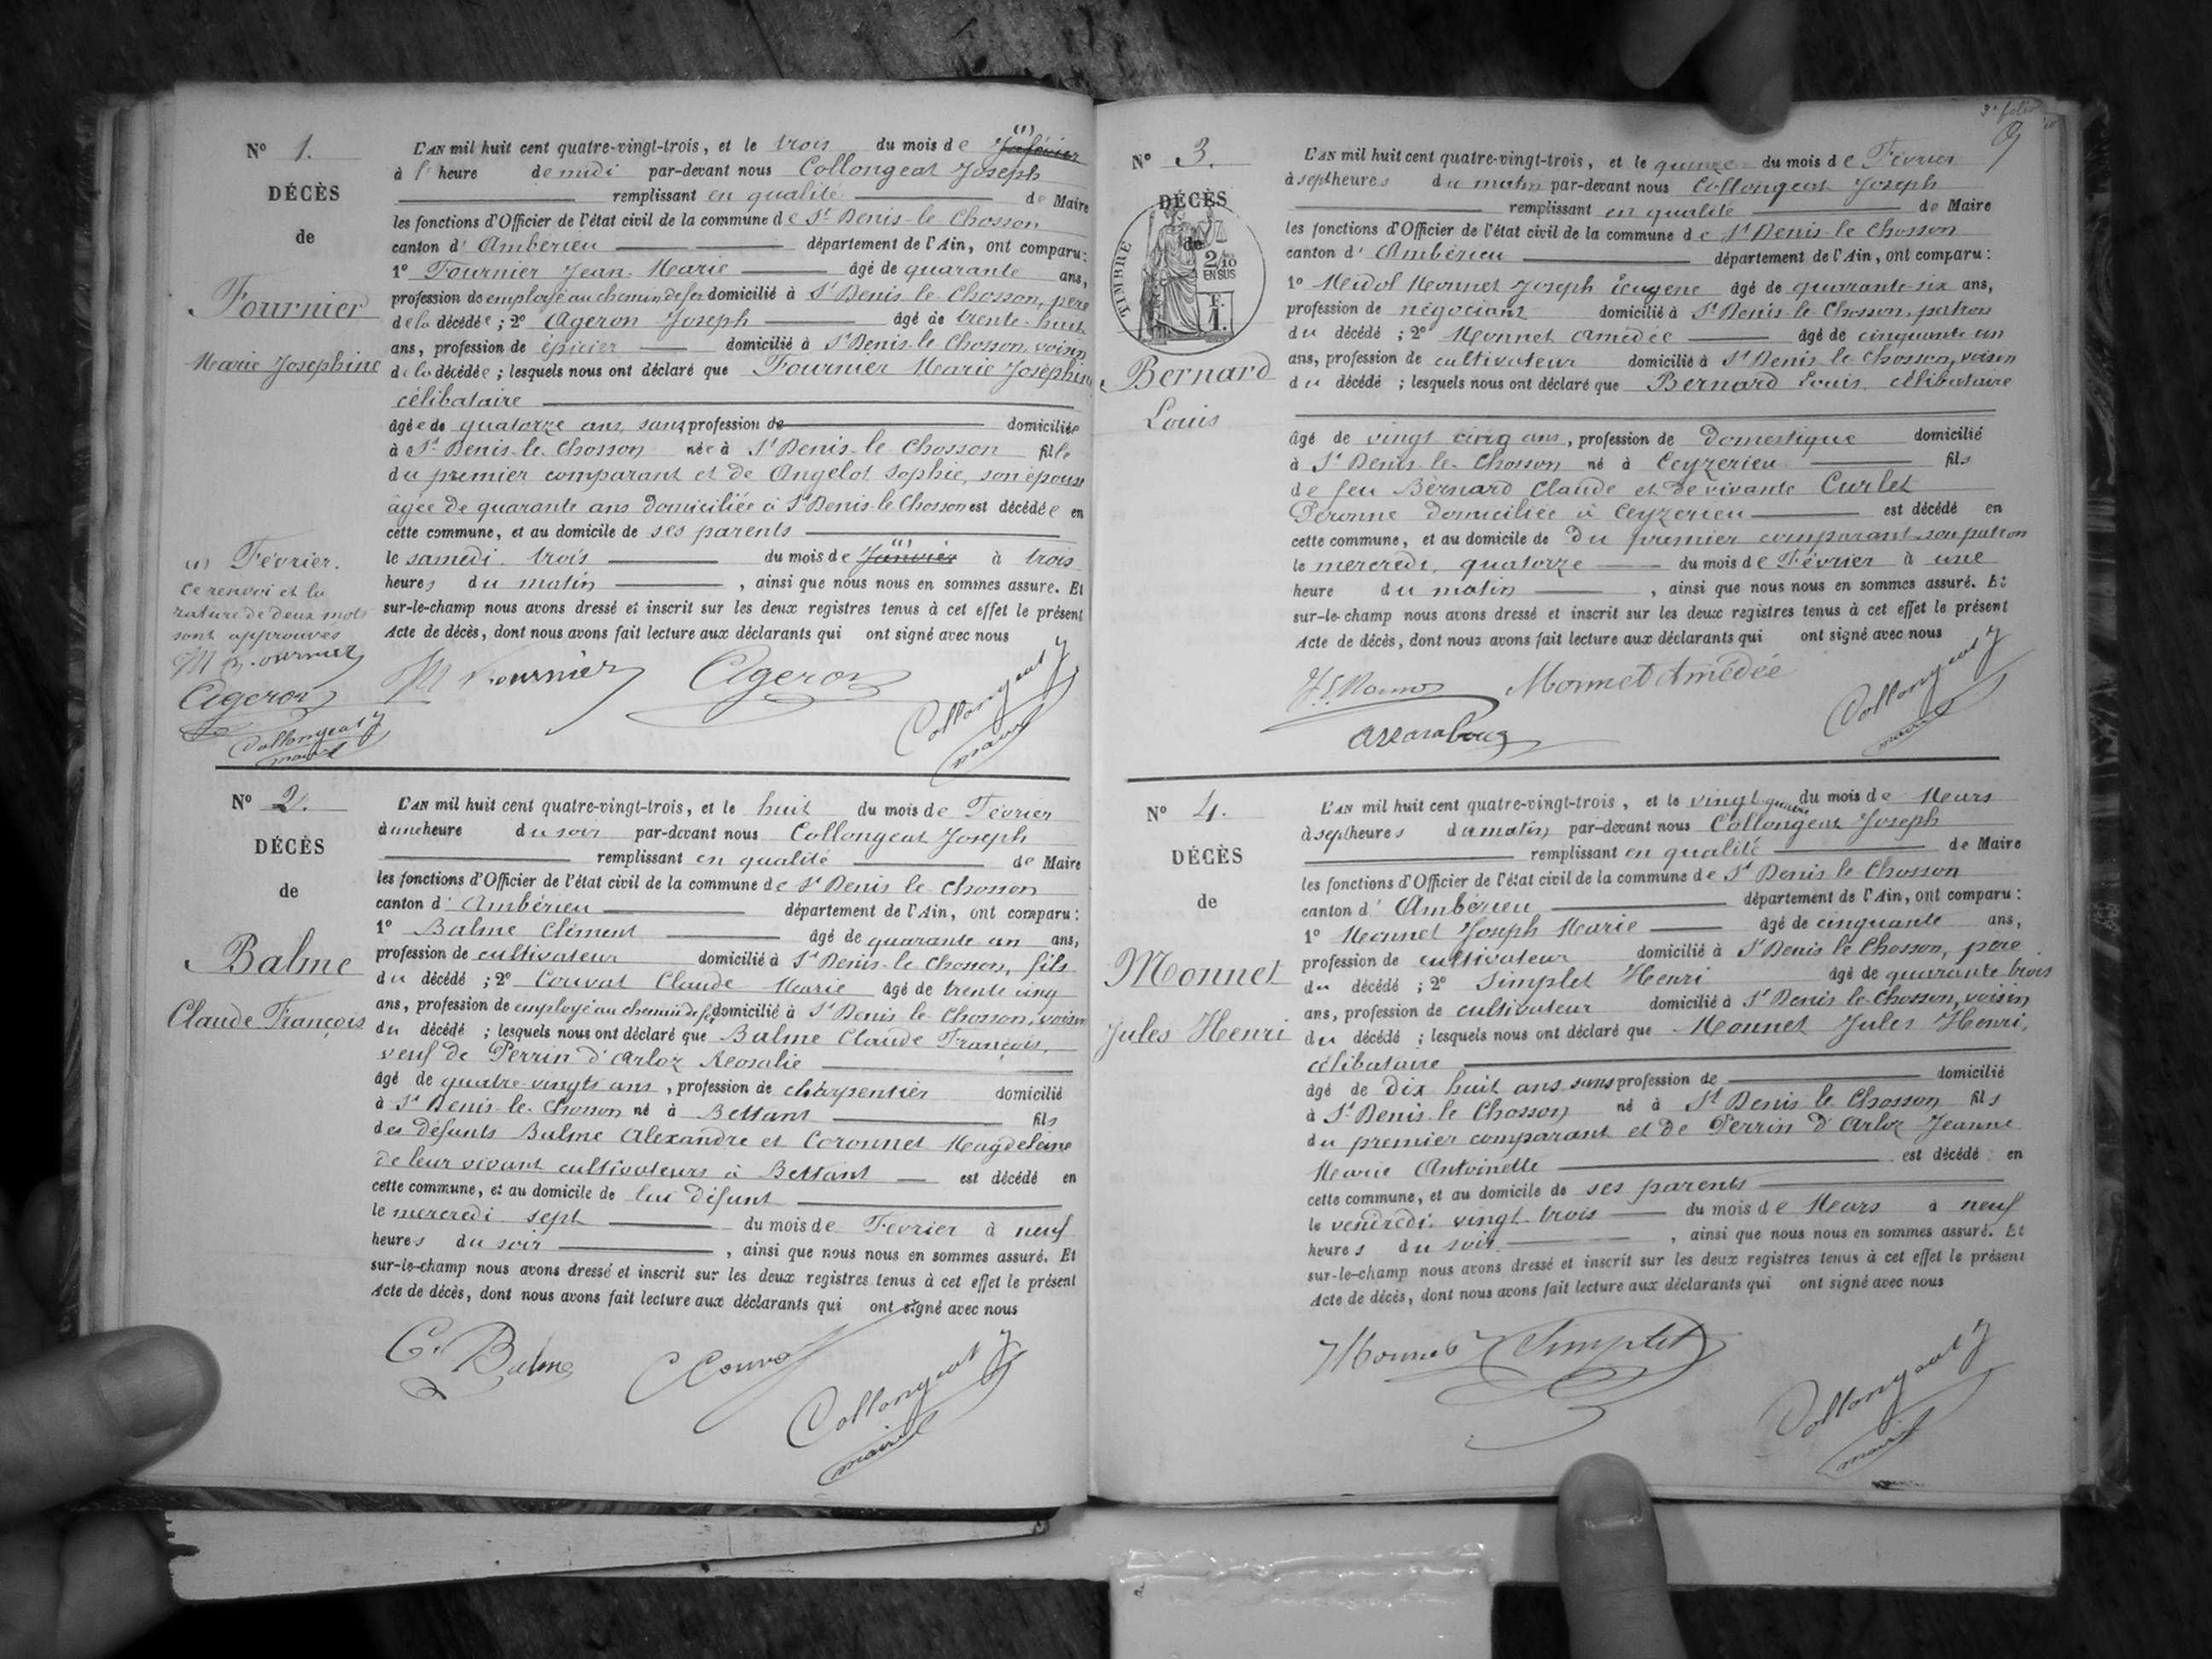 N° 1.
DÉCÈS
de
Fournier
Marie Josephine
L'AN mil huit cent quatre-vingt-trois, et le trois du mois de (1)
à l' heure de midi par-devant nous Collongeat Joseph
remplissant en qualité de Maire
les fonctions d'Officier de l'état civil de la commune de St Denis-le Chosson
canton d' Ambérieu département de l'Ain, ont comparu:
1° Fournier Jean-Marie âgé de quarante ans,
profession de employé au chemin de fer domicilié à St Denis-le Chosson, père
de la décédée ; 2° Ageron Joseph âgé de trente-huit
ans, profession de épicier domicilié à St Denis-le Chosson, voisin
de la décédée ; lesquels nous ont déclaré que Fournier Marie Joséphine
célibataire
âgée de quatorze ans, sans profession de domiciliée
à St Denis-le-Chosson née à St Denis-le Chosson fille
du premier comparant et de Angelot Sophie, son épouse
âgée de quarante ans domiciliée à St Denis-le Chosson est décédée en
cette commune, et au domicile de ses parents
le samedi trois du mois de Janvier (1) à trois
heures du matin , ainsi que nous nous en sommes assuré. Et
sur-le-champ nous avons dressé et inscrit sur les deux registres tenus à cet effet le présent
Acte de décès, dont nous avons fait lecture aux déclarants qui ont signé avec nous
(1) Février.
ce renvoi et la
rature de deux mots
sont approuvés
M Fournier
Ageron
Collongeat J
maire
M Fournier Ageron Collongeat J
maire
N° 2.
DÉCÈS
de
Balme
Claude François
L'AN mil huit cent quatre-vingt-trois, et le huit du mois de Février
à une heure du soir par-devant nous Collongeat Joseph
remplissant en qualité de Maire
les fonctions d'Officier de l'état civil de la commune de St Denis le Chosson
canton d' Ambérieu département de l'Ain, ont comparu:
1° Balme Clément âgé de quarante un ans,
profession de cultivateur domicilié à St Denis-le Chosson, fils
du décédé ; 2° Couvat Claude Marie âgé de trente cinq
ans, profession de employé au chemin de fer domicilié à St Denis le Chosson, voisin
du décédé ; lesquels nous ont déclaré que Balme Claude François,
veuf de Perrin d'Arloz Rosalie
âgé de quatre-vingts ans, profession de charpentier domicilié
à St Denis-le-Chosson né à Bettant fils
des défunts Balme Alexandre et Coronnet Magdeleine
de leur vivant cultivateurs à Bettant est décédé en
cette commune, et au domicile de lui défunt
le mercredi sept du mois de Février à neuf
heures du soir , ainsi que nous nous en sommes assuré. Et
sur-le-champ nous avons dressé et inscrit sur les deux registres tenus à cet effet le présent
Acte de décès, dont nous avons fait lecture aux déclarants qui ont signé avec nous
C. Balme C Couvat Collongeat J
maire
N° 3.
DÉCÈS
de
TIMBRE
2/10
EN SUS
F.
1.
Bernard
Louis
L'AN mil huit cent quatre-vingt-trois, et le quinze du mois de Février
à sept heures du matin par-devant nous Collongeat Joseph
remplissant en qualité de Maire
les fonctions d'Officier de l'état civil de la commune de St Denis-le Chosson
canton d' Ambérieu département de l'Ain, ont comparu:
1° Midol Monnet Joseph Eugène âgé de quarante-six ans,
profession de négociant domicilié à St Denis-le-Chosson, patron
du décédé ; 2° Monnet Amédée âgé de cinquante un
ans, profession de cultivateur domicilié à St Denis le Chosson, voisin
du décédé ; lesquels nous ont déclaré que Bernard Louis, célibataire
âgé de vingt cinq ans, profession de Domestique domicilié
à St Denis-le-Chosson né à Ceyzerieu fils
de feu Bernard Claude et de vivante Curlet
Peronne domiciliée à Ceyzerieu est décédé en
cette commune, et au domicile de du premier comparant son patron
le mercredi quatorze du mois de Février à une
heure du matin , ainsi que nous nous en sommes assuré. Et
sur-le-champ nous avons dressé et inscrit sur les deux registres tenus à cet effet le présent
Acte de décès, dont nous avons fait lecture aux déclarants qui ont signé avec nous
Monnet Amédée Collongeat J
maire
N° 4.
DÉCÈS
de
Monnet
Jules Henri
L'AN mil huit cent quatre-vingt-trois, et le vingt quatre du mois de Mars
à sept heures du matin par-devant nous Collongeat Joseph
remplissant en qualité de Maire
les fonctions d'Officier de l'état civil de la commune de St Denis le Chosson
canton d' Ambérieu département de l'Ain, ont comparu:
1° Monnet Joseph Marie âgé de cinquante ans,
profession de cultivateur domicilié à St Denis le Chosson, père
du décédé ; 2° Simplet Henri âgé de quarante trois
ans, profession de cultivateur domicilié à St Denis le-Chosson, voisin
du décédé ; lesquels nous ont déclaré que Monnet Jules Henri,
célibataire
âgé de Dix huit ans sans profession de domicilié
à St Denis le Chosson né à St Denis le Chosson fils
du premier comparant et de Perrin d'Arloz Jeanne
Marie Antoinette est décédé en
cette commune, et au domicile de ses parents
le vendredi vingt trois du mois de Mars à neuf
heures du soir , ainsi que nous nous en sommes assuré. Et
sur-le-champ nous avons dressé et inscrit sur les deux registres tenus à cet effet le présent
Acte de décès, dont nous avons fait lecture aux déclarants qui ont signé avec nous
Monnet Simplet Collongeat J
maire